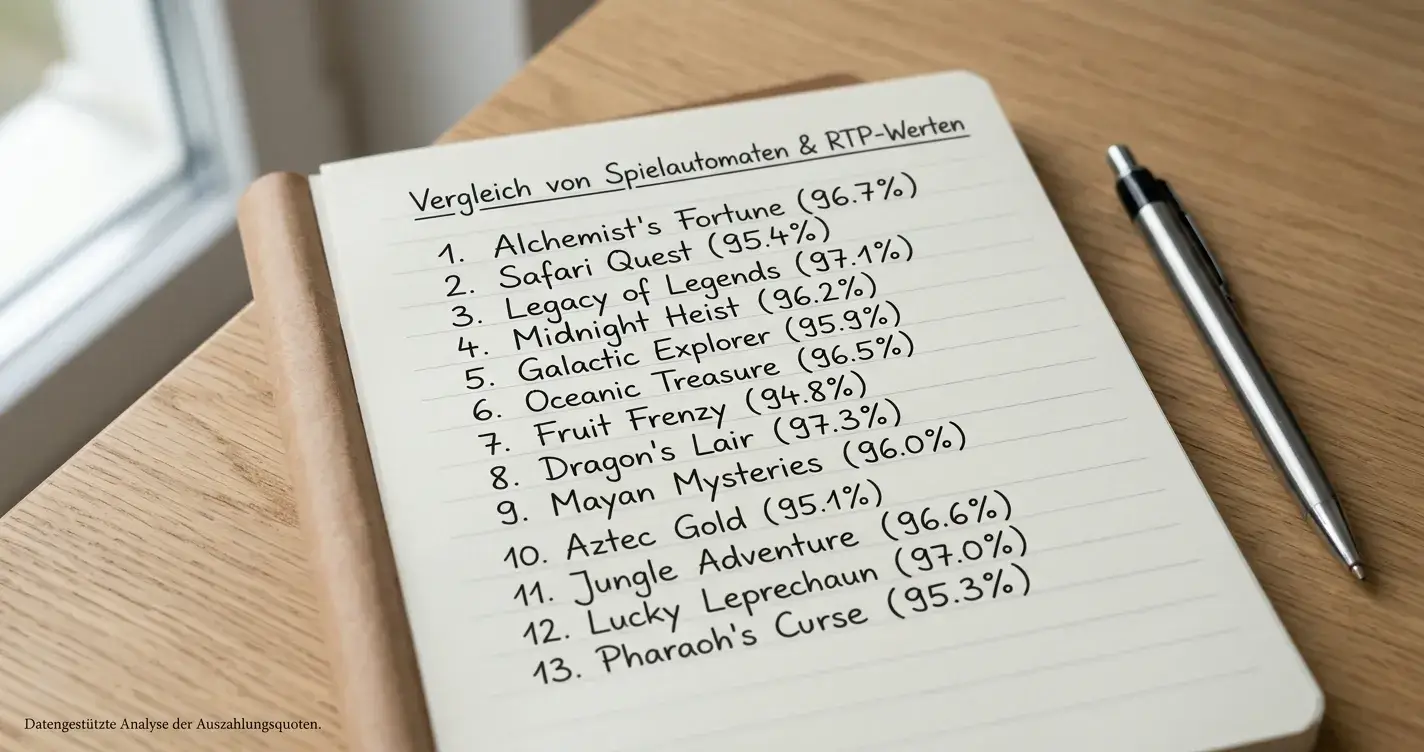 Vergleich von Spielautomaten & RTP-Werten
1. Alchemist's Fortune (96.7%)
2. Safari Quest (95.4%)
3. Legacy of Legends (97.1%)
4. Midnight Heist (96.2%)
5. Galactic Explorer (95.9%)
6. Oceanic Treasure (96.5%)
7. Fruit Frenzy (94.8%)
8. Dragon's Lair (97.3%)
9. Mayan Mysteries (96.0%)
10. Aztec Gold (95.1%)
11. Jungle Adventure (96.6%)
12. Lucky Leprechaun (97.0%)
13. Pharaoh's Curse (95.3%)
Datengestützte Analyse der Auszahlungsquoten.